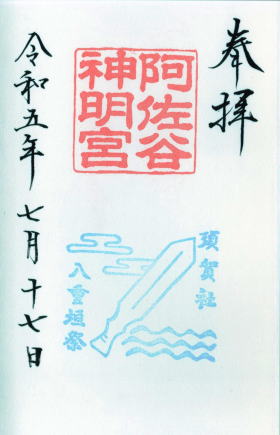 奉拝
阿佐谷
神明宮
須賀社
八重垣祭
令和五年 七月 十七日